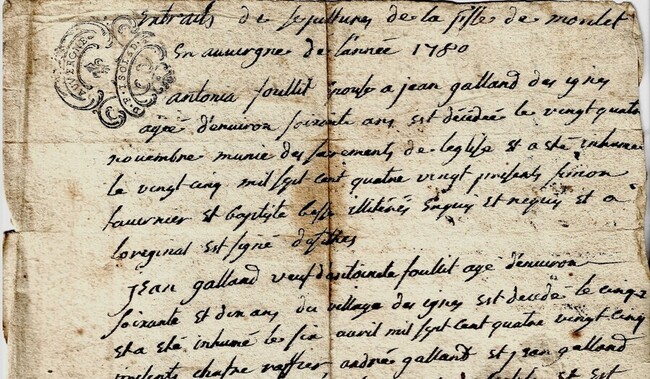 Extraits de sepultures de la ville de
En auvergne de l'année 1780
AUVERGNE
antonia foullit Epouse a jean galland des ignes
agée d'environ soixante ans est décédée le vingt quatre
novembre munie des sacrements de leglise et a été inhumée
le vingt cinq mil sept cent quatre vingt présents simon
fauvernier et baptiste besse illitérés Enquis et requis et a
loreginal est signé
jean galland veuf d'antoinete foullit agé d'environ
soixante et dix ans du village des ignes est décédé le cinq
et a été inhumé le six avril mil sept cent quatre vingt cinq
présents andré galland et jean galland
et est